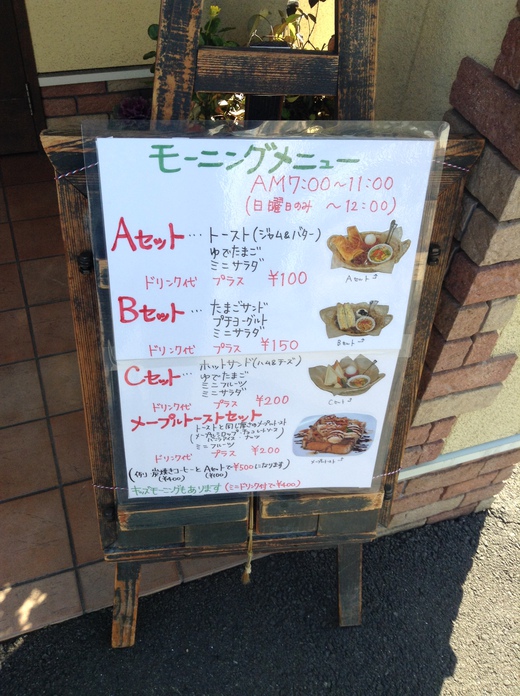 モーニングメニュー
AM7:00～11:00
(日曜日のみ ～12:00)
Aセット…トースト(ジャム&バター)
ゆでたまご
ミニサラダ
ドリンク代 プラス ¥100
Aセット
Bセット…たまごサンド
プチヨーグルト
ミニサラダ
ドリンク代 プラス ¥150
Bセット
Cセット…ホットサンド(ハム&チーズ)
ゆでたまご
ミニフルーツ
ミニサラダ
ドリンク代 プラス ¥200
Cセット
メープルトーストセット
トーストと同じ厚さのメープルトースト
(メープルシロップ・チョコレートソース
ミニフルーツ
ドリンク代 プラス ¥200
メープルトースト
(例) 炭焼きコーヒーと Aセットで¥500になります)
(¥400) (¥100)
キッズモーニングもあります (ミニドリンク付で¥400)